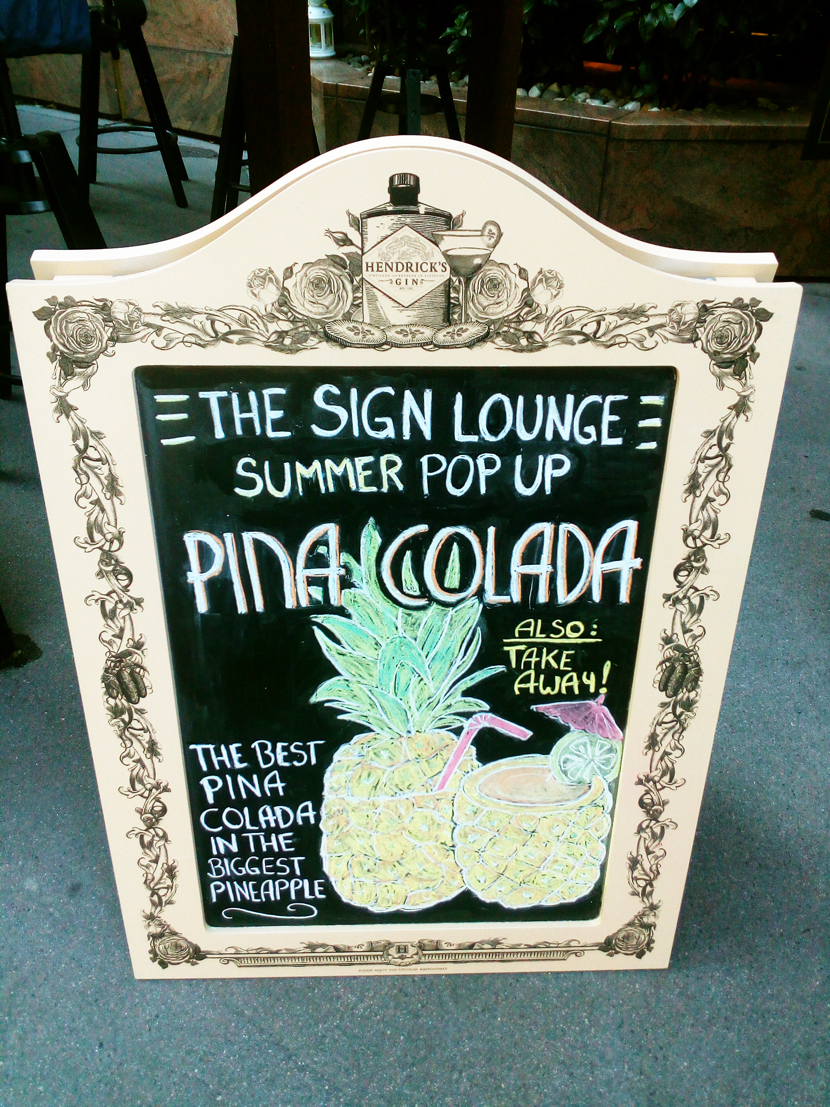 HENDRICK'S
GIN
THE SIGN LOUNGE
SUMMER POP UP
PINA COLADA
ALSO:
TAKE
AWAY!
THE BEST
PINA
COLADA
IN THE
BIGGEST
PINEAPPLE
H